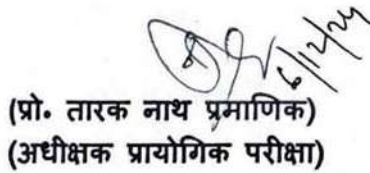 6/12/24
(प्रो. तारक नाथ प्रमाणिक)
(अधीक्षक प्रायोगिक परीक्षा)